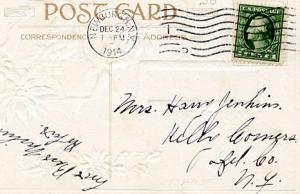 POST CARD
CORRESPONDENCE
ADDRESS
NEWBURGH, N.Y.
DEC 24
1 - PM
1914
Mrs. Harry Jenkins.
Kelly Corners
Del. Co.
N.Y.